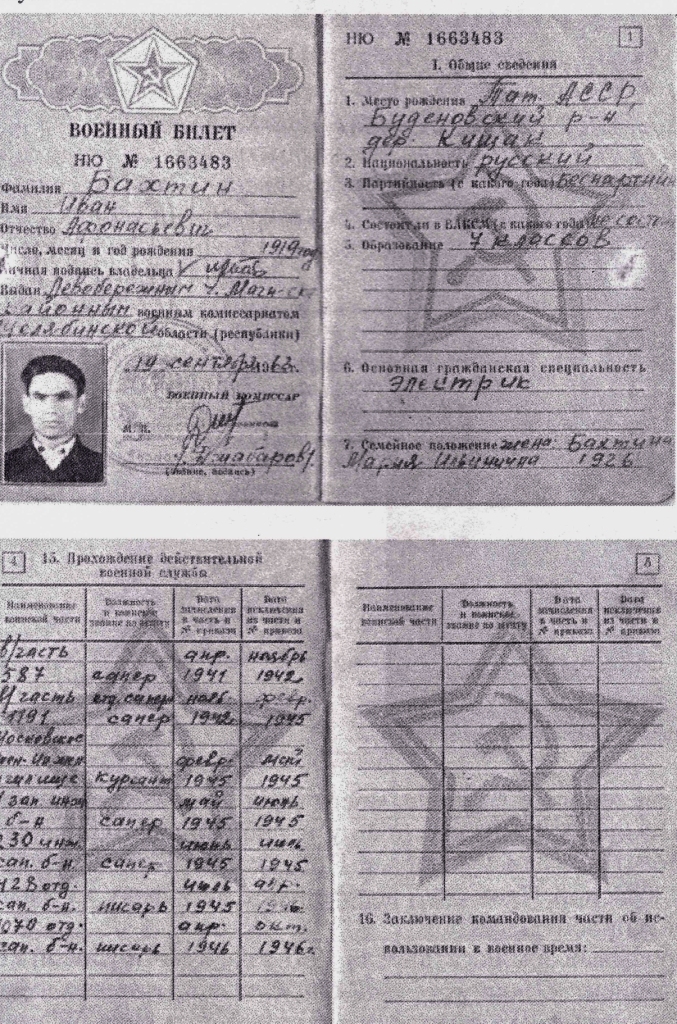 ВОЕННЫЙ БИЛЕТ
НЮ № 1663483
Фамилия Бахтин
Имя Иван
Отчество Афонасьевич
Число, месяц и год рождения 1919 год
Личная подпись владельца
Выдан Левобережным г. Магн-ск
районным военным комиссариатом
Челябинской области (республики)
19 сентября 1962г.
ВОЕННЫЙ КОМИССАР
М. П.
(звание, подпись)
НЮ № 1663483
1
I. Общие сведения
1. Место рождения Тат. АССР,
Буденовский р-н
дер. Кищак
2. Национальность русский
3. Партийность (с какого года) Беспартийн
4. Состоит ли в ВЛКСМ (с какого года) не сост
5. Образование 7 классов
6. Основная гражданская специальность
Электрик
7. Семейное положение жена: Бахтина
Мария Ильинична 1926
4
15. Прохождение действительной
военной службы
Наименование воинской части
Должность и воинское звание по штату
Дата зачисления в часть и № приказа
Дата исключения из части и № приказа
в/часть апр. ноябрь
587 сапер 1941 1942
в/часть отд. сапер нояб. февр.
1191 сапер 1942 1945
Московское
воен. инжен февр. май
училище курсант 1945 1945
зап. инж май июнь
б-н сапер 1945 1945
230 инж. июнь июль
сап. б-н. сапер 1945 1945
128 отд. июль апр.
сап. б-н. писарь 1945
1070 отд. апр. окт.
сап. б-н. писарь 1946 1946г.
5
Наименование воинской части
Должность и воинское звание по штату
Дата зачисления в часть и № приказа
Дата исключения из части и № приказа
16. Заключение командования части об ис-
пользовании в военное время: